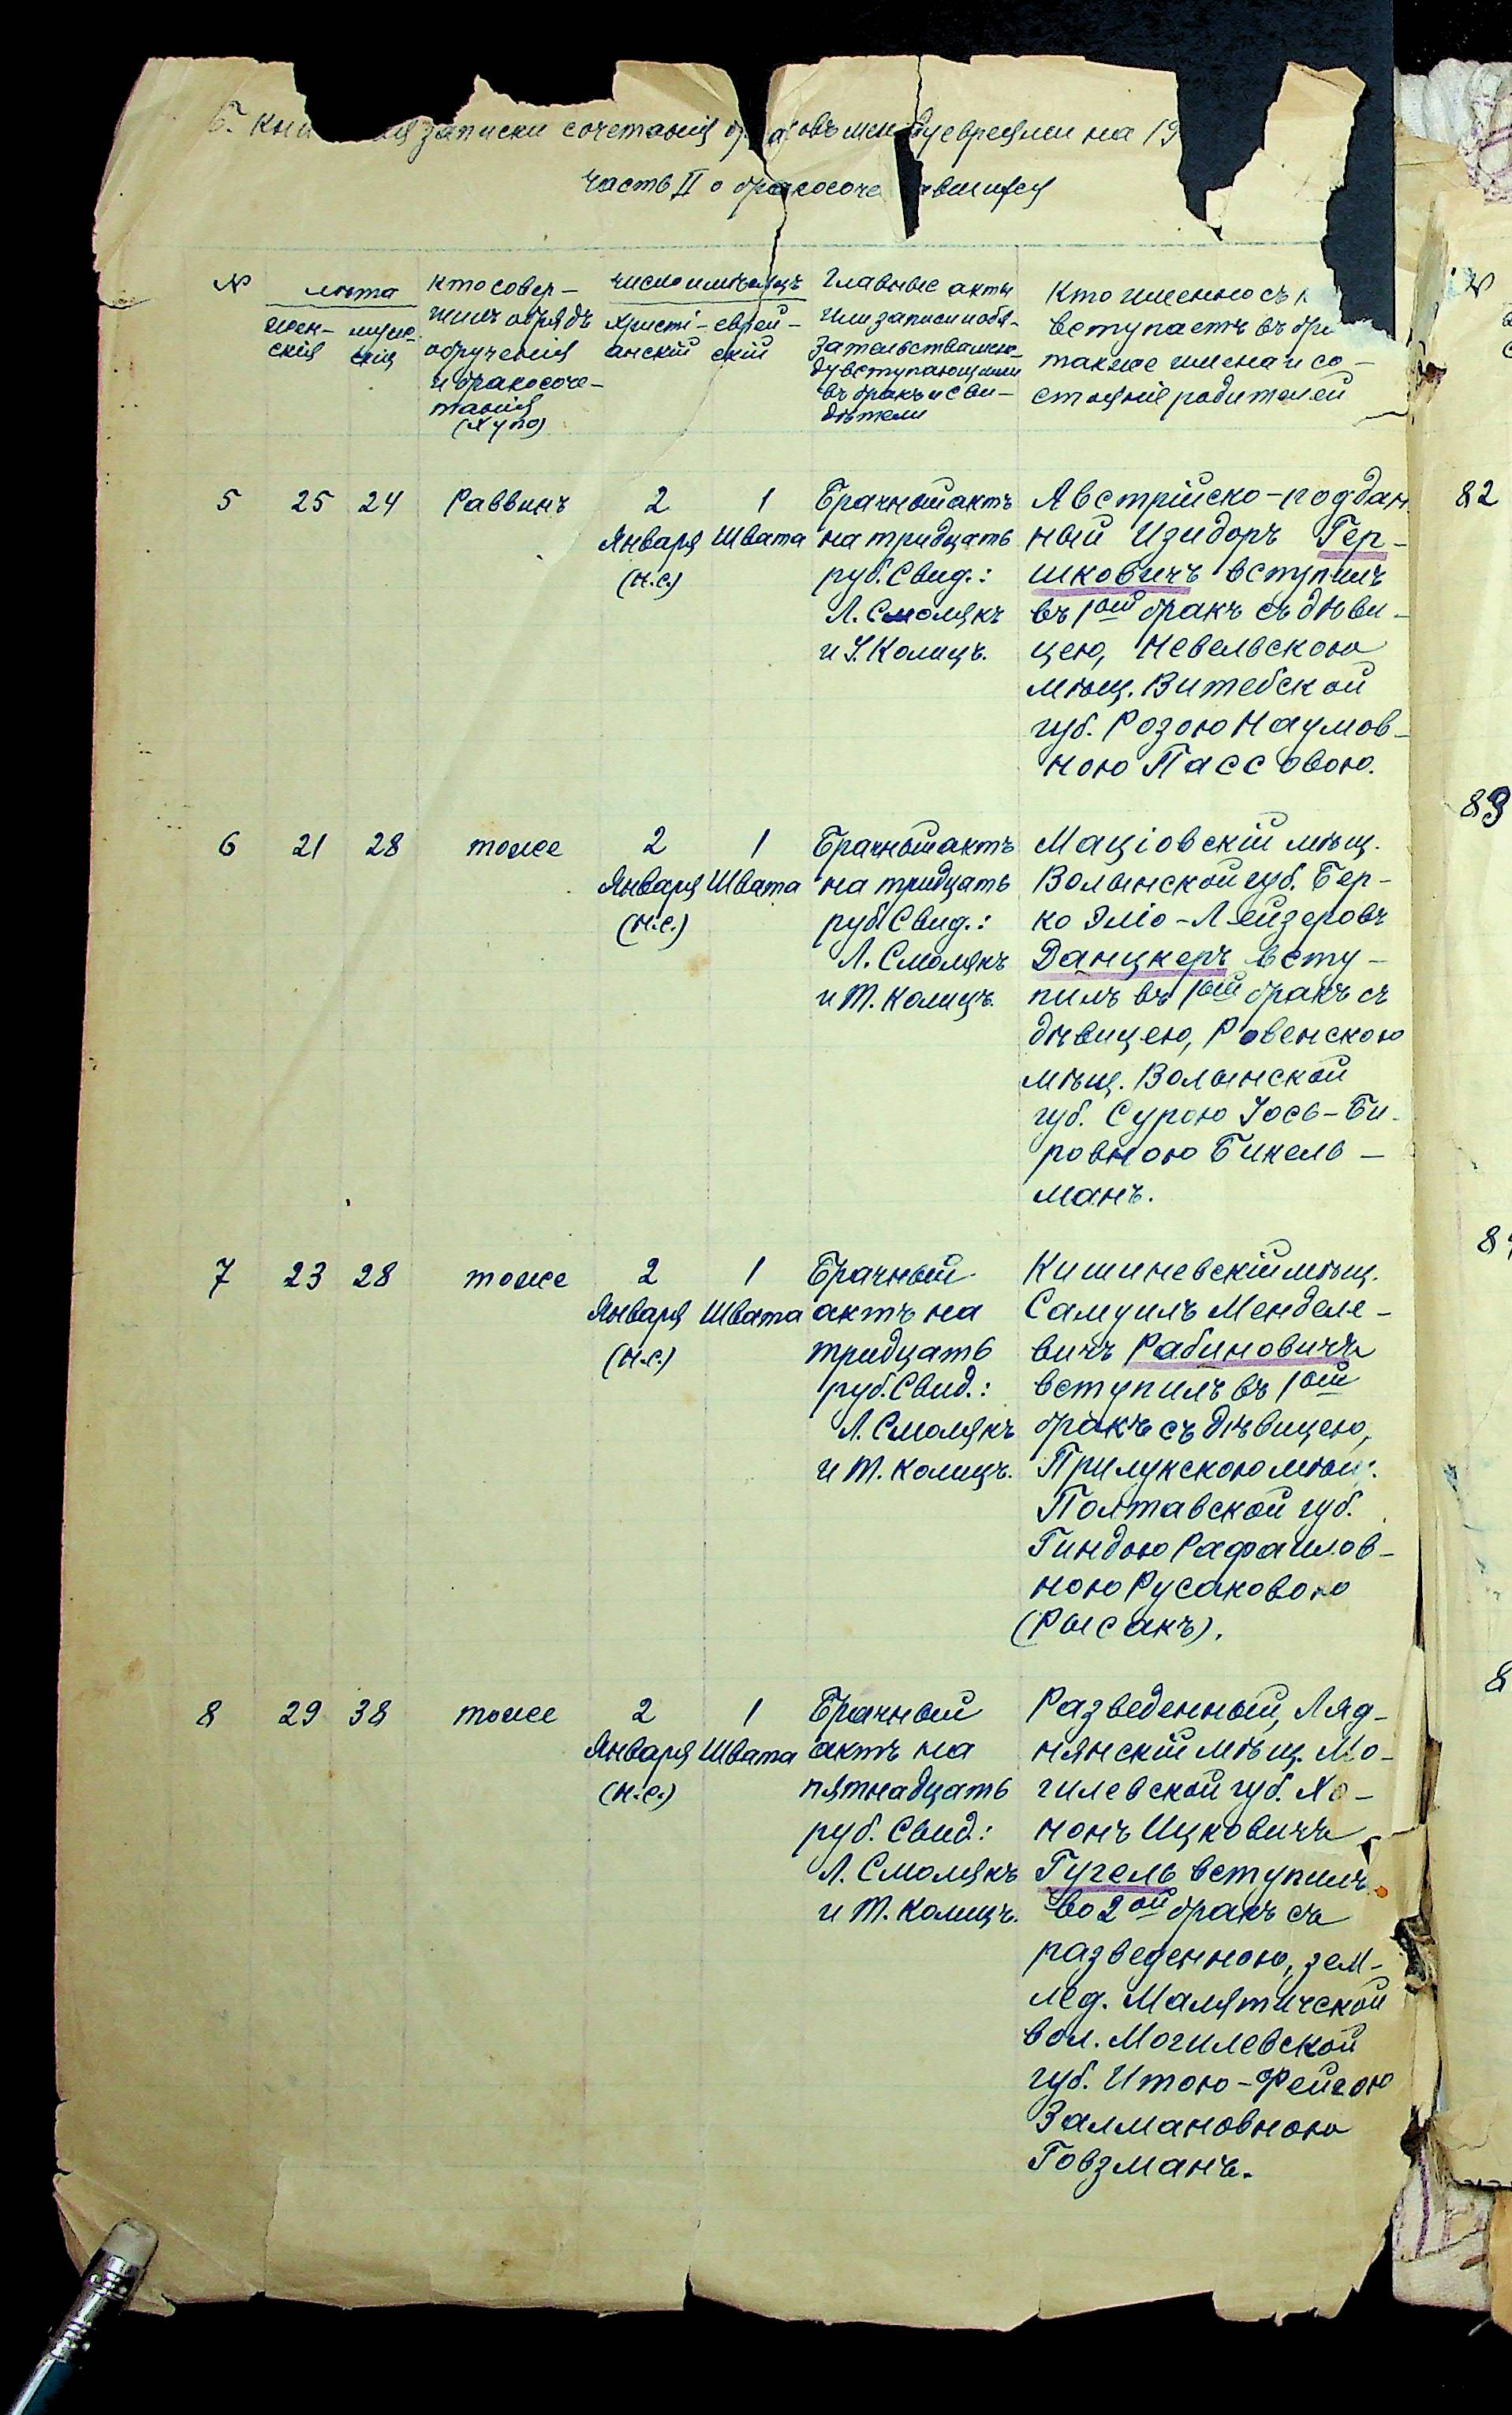 записки сочетанія между евреями на 19
Часть II о бракосочетавшихся
№
лѣта
жен-
скія
мужс-
кія
кто совер-
шилъ обрядъ
обрученія
и бракосоче-
танія
(Хупо)
число и мѣсяцъ
христі-
анскій
еврей-
скій
Главные акты
или записи и обя-
зательства меж-
ду вступающими
въ бракъ и сви-
дѣтели
Кто именно съ к
вступаетъ въ бра
также имена и со-
стояніе родителей
5
25
24
Раввинъ
2
Января
(н.с.)
1
Швата
Брачный актъ
на тридцать
руб. Свид.:
Л. Смолякъ
и І. Колицъ.
Австрійско-поддан
ный Изидоръ Гер-
шковичъ вступилъ
въ 1ый бракъ съ дѣви-
цею, Невельскою
мѣщ. Витебской
губ. Розою Наумов-
ною Пассовою.
6
21
28
тоже
2
Января
(н.с.)
1
Швата
Брачный актъ
на тридцать
руб. Свид.:
Л. Смолякъ
и Т. Колицъ.
Маціовскій мѣщ.
Волынской губ. Бер-
ко Эліо-Лейзеровъ
Данцкеръ всту-
пилъ въ 1ый бракъ съ
дѣвицею, Ровенскою
мѣщ. Волынской
губ. Сурою Іось-Би-
ровною Бикель-
манъ.
7
23
28
тоже
2
Января
(н.с.)
1
Швата
Брачный
актъ на
тридцать
руб. Свид.:
Л. Смолякъ
и Т. Колицъ.
Кишиневскій мѣщ.
Самуилъ Менделе-
вичъ Рабиновичъ
вступилъ въ 1ый
бракъ съ дѣвицею,
Прилукскою мѣщ.
Полтавской губ.
Гиндою Рафаилов-
ною Русаковою
(Рысакъ).
8
29
38
тоже
2
Января
(н.с.)
1
Швата
Брачный
актъ на
пятнадцать
руб. Свид.:
Л. Смолякъ
и Т. Колицъ.
Разведенный, Ляд-
нянскій мѣщ. Мо-
гилевской губ. Хо-
нонъ Ицковичъ
Гугель вступилъ
во 2ой бракъ съ
разведенною, зем-
лед. Малятичской
вол. Могилевской
губ. Итою-Фейгою
Залмановною
Говзманъ.
82
83
8
8